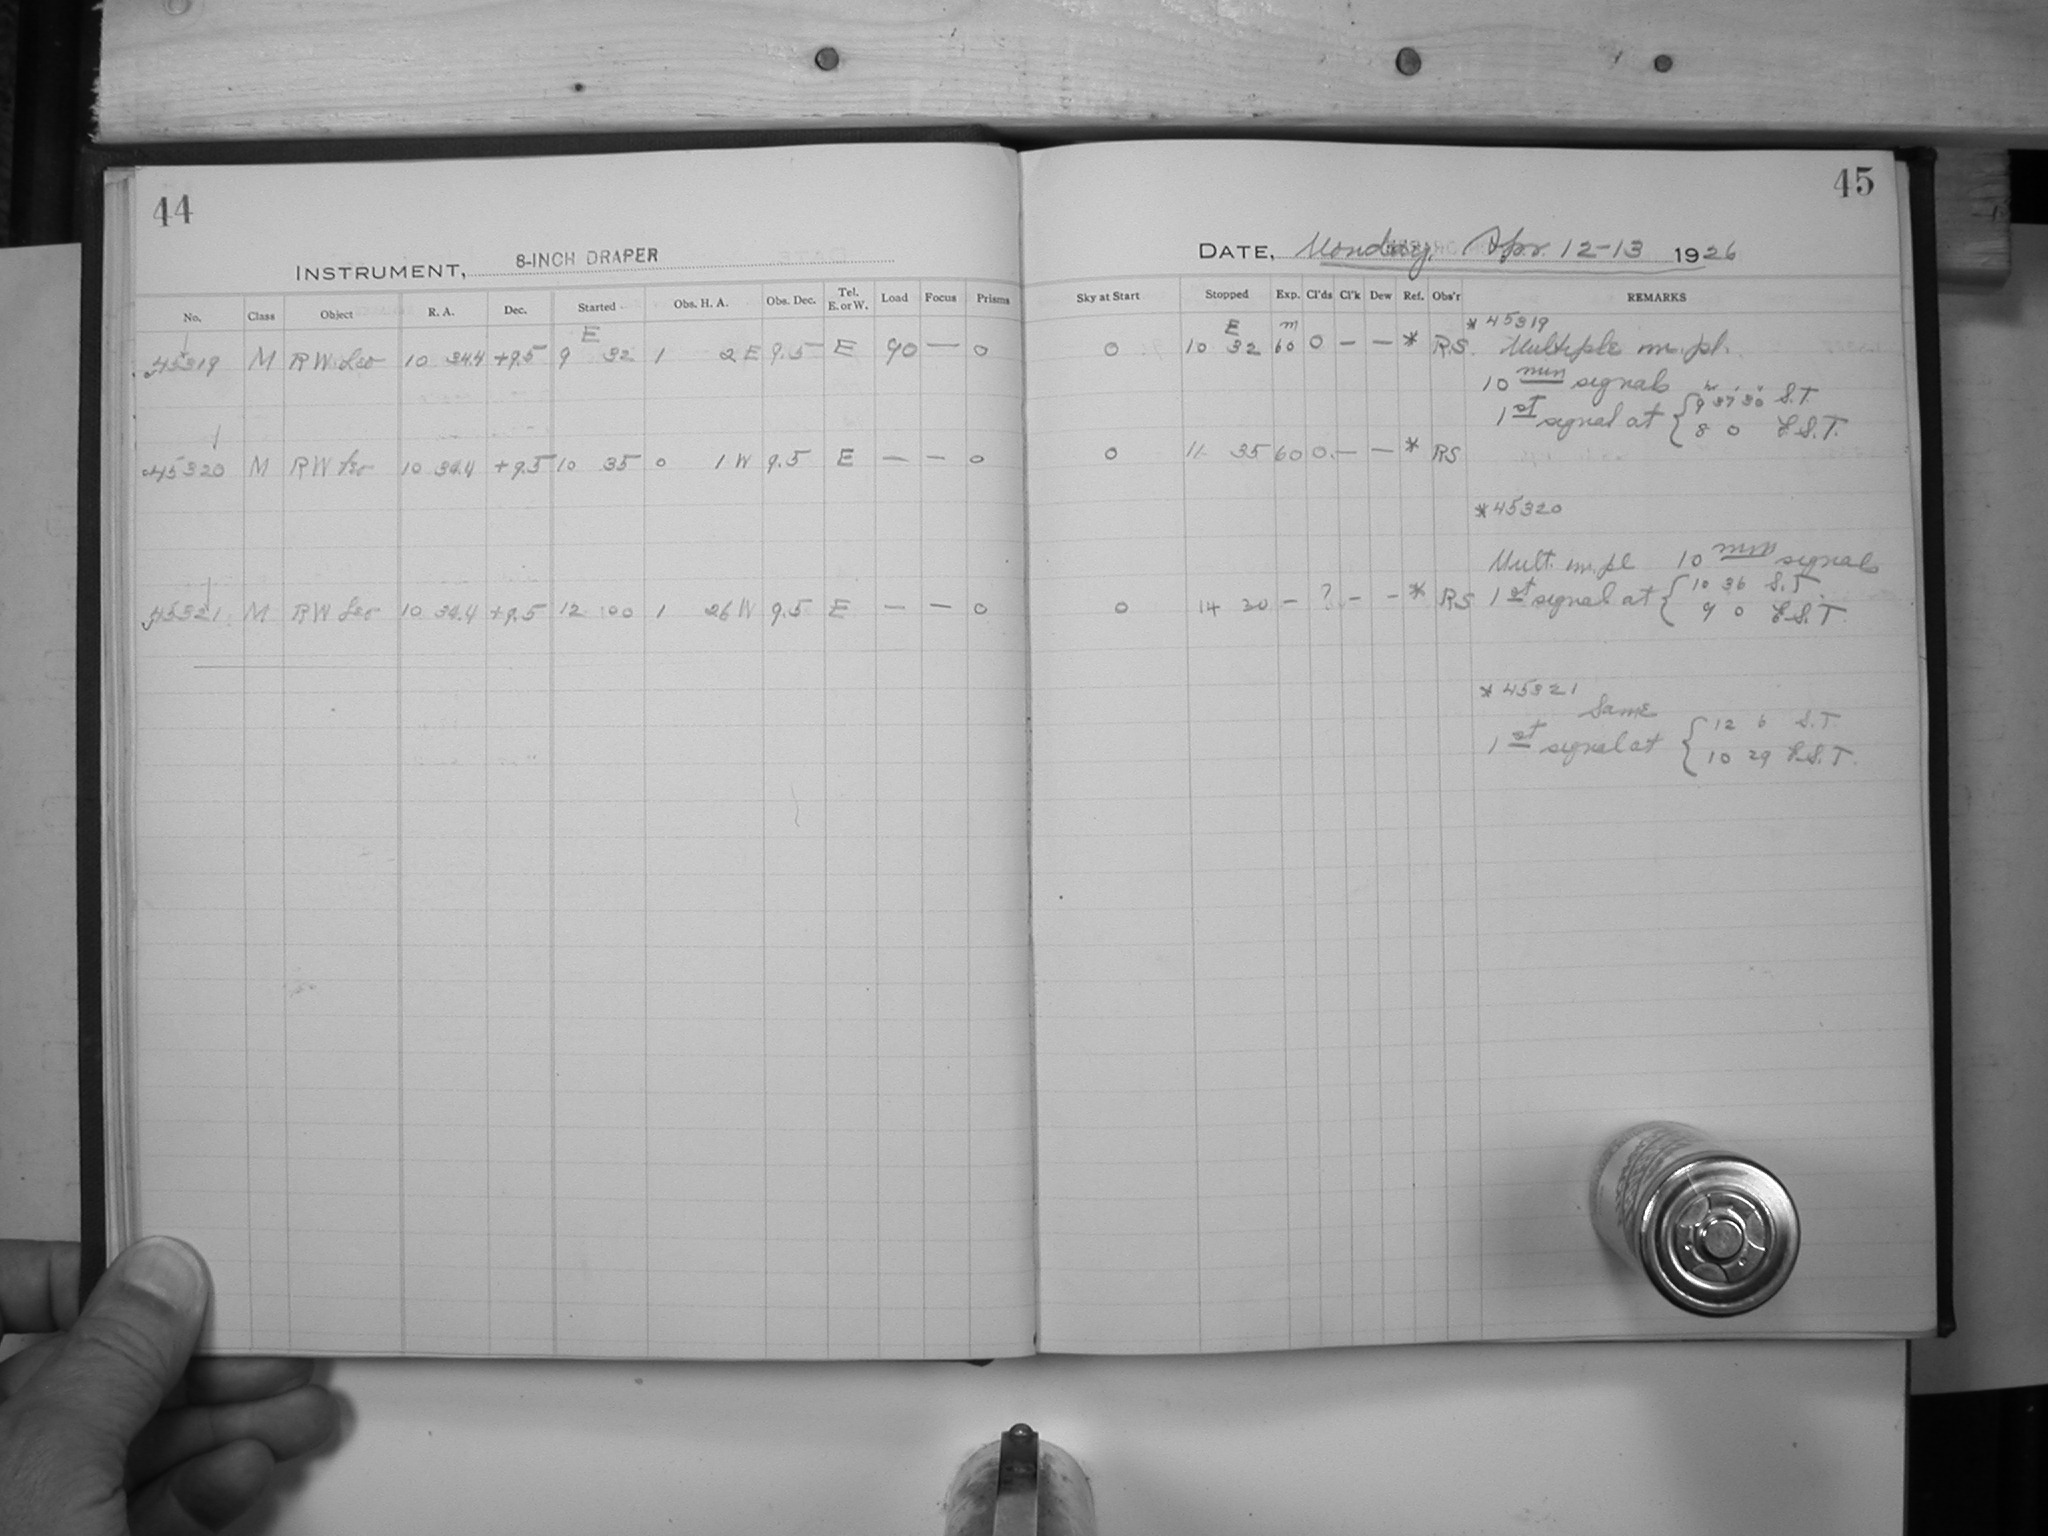 44
INSTRUMENT, 8-INCH DRAPER
No. Class Object R. A. Dec. Started Obs. H. A. Obs. Dec. Tel. E. or W. Load Focus Prisms
E
45319 M RW Leo 10 34.4 +9.5 9 32 1 2 E 9.5 E 90 — 0
45320 M RW Leo 10 34.4 +9.5 10 35 0 1 W 9.5 E — — 0
45321 M RW Leo 10 34.4 +9.5 12 00 1 26 W 9.5 E — — 0
45
DATE, Monday, Apr. 12-13 1926
Sky at Start Stopped Exp. Cl'ds Cl'k Dew Ref. Obs'r REMARKS
E m * 45319
0 10 32 60 0 — — * R.S. Multiple im. pl.
10 min signals
1st signal at { 9 37 30 S.T.
8 0 E.S.T.
0 11 35 60 0 — — * RS
* 45320
Mult. im. pl 10 min signals
0 14 30 — ? — — * RS 1st signal at { 10 36 S.T.
9 0 E.S.T.
* 45321
Same
1st signal at { 12 6 S.T.
10 29 E.S.T.